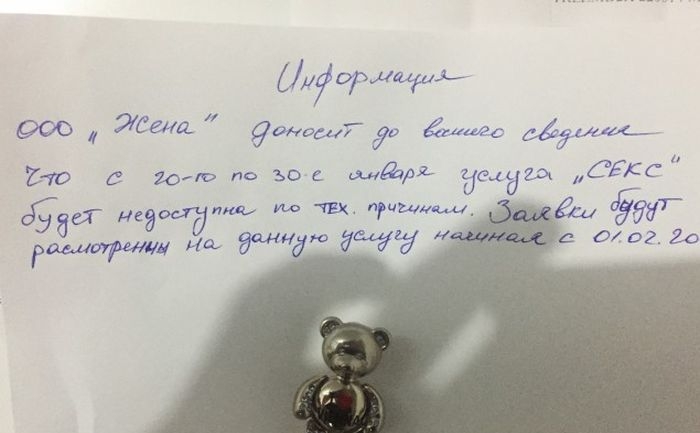 Информация
ООО „Жена" доносит до вашего сведения
что с 20-го по 30-е января услуга „СЕКС"
будет недоступна по тех. причинам. Заявки будут
расмотренны на данную услугу начиная с 01.02.20